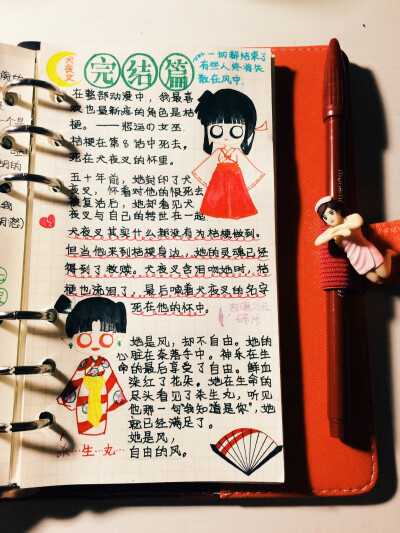 犬夜叉
完结篇
一切都结束了
有些人终消失
散在风中.
在整部动漫中，我最喜
欢也最新疼的角色是桔
梗。——悲运の女巫
桔梗在第8话中死去。
死在犬夜叉的怀里。
五十年前，她封印了犬
夜叉，怀着对他的恨死去
被复活后，她却看见犬
夜叉与自己的转世在一起
犬夜叉其实什么都没有为桔梗做到。
但当他来到桔梗身边，她的灵魂已经
得到了救赎。犬夜叉含泪吻她时，桔
梗也流泪了，最后唤着犬夜叉的名字
死在他的怀中。
四魂之玉
碎片
她是风，却不自由。她的
心脏在奈落手中。神乐在生
命的最后享受了自由。鲜血
染红了花朵。她在生命的
尽头看见了杀生丸，听见
他那一句"我知道是你"，她
就已经满足了。
她是风，
自由的风。
杀…生…丸…